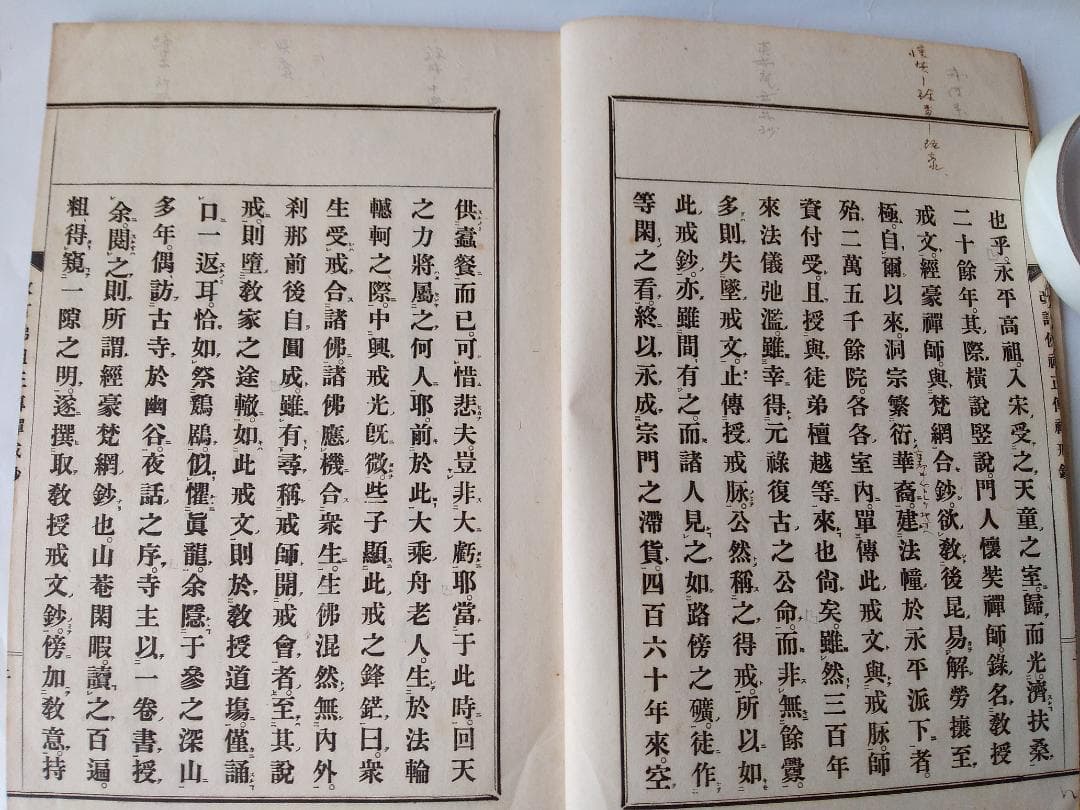 也乎。永平高祖。入宋受之天童之室。歸而光濟扶桑
二十餘年。其際橫說竪說。門人懷奘禪師。錄名敎授
戒文。經豪禪師。與梵網合鈔。欲敎後昆易解勞攘至
極。自爾以來。洞宗繁衍華裔。建法幢於永平派下者。
殆二萬五千餘院。各各室內。單傳此戒文與戒脉。師
資付受。且授與徒弟檀越等來也尙矣。雖然三百年
來。法儀弛濫。雖幸得元祿復古之公命。而非無餘釁。
多則失墜戒文。止傳授戒脉。公然稱之得戒。所以如
此戒鈔。亦雖間有之。而諸人見之如路傍之礦。徒作
等閑之看。終以永成宗門之滯貨。四百六十年來。空
供蠹餐而已。可惜悲夫。豈非大虧耶。當于此時。回天
之力將屬之何人耶。前於此大乘舟老人。生於法輪
轗軻之際。中興戒光旣微。些子顯此戒之鋒鋩曰。衆
生受戒合諸佛。諸佛應機合衆生。生佛混然無內外。
刹那前後自圓成。雖有尋稱戒師開戒會者。至其說
戒。則墮敎家之途轍。如此戒文。則於敎授道塲。僅誦
口一返耳。恰如祭鷄鴟。似懼眞龍。余隱于參之深山
多年。偶訪古寺於幽谷。夜話之序。寺主以一卷書授
余。閱之則所謂經豪梵網鈔也。山菴閑暇。讀之百遍。
粗得窺一隙之明。遂撰取敎授戒文鈔。傍加敎意。持